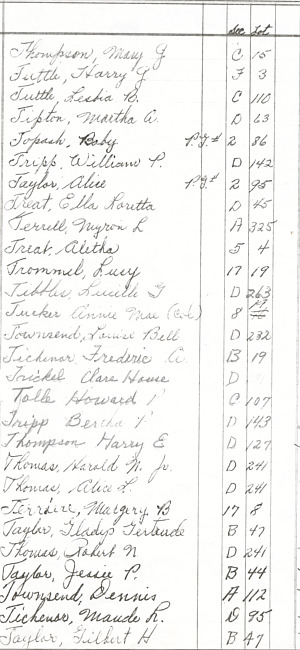 Sec Lot
Thompson, Mary G C 15
Tuttle, Harry G F 3
Tuttle, Lesbia B. C 110
Tipton, Martha A. D 63
Topash, Baby P.G.# 2 86
Tripp, William P. D 142
Taylor, Alice P.G.# 2 95
Treat, Ella Loretta D 45
Terrell, Myron L A 325
Treat, Aletha 5 4
Trommel, Lucy 17 19
Tibbles, Lucille G D 263
Tucker Annie Mae (Col) 8
Townsend, Louise Bell D 232
Tichenor, Frederic A. B 19
Trickel Clara House D
Tolle Howard C 107
Tripp Bertha D 143
Thompson Harry E D 127
Thomas, Harold N. Jr. D 241
Thomas, Alice L. D 241
Terriere, Margery B 17 8
Taylor, Gladys Gertrude B 47
Thomas, Robert N D 241
Taylor, Jessie P. B 44
Townsend, Dennis A 112
Tichenor, Maude L. D 95
Taylor, Gilbert H B 47